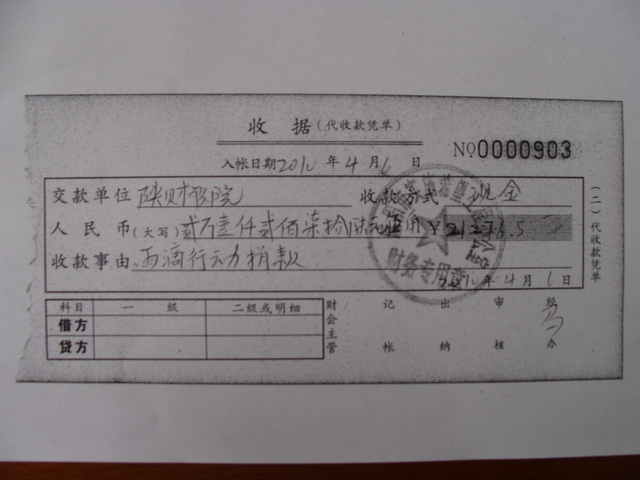 收 据 (代收款凭单)
入帐日期 2010 年 4 月 6 日 No.0000903
交款单位 陕财职院 收款方式 现金
人民币 (大写) 贰万壹仟贰佰柒拾陆元伍角 ¥21276.5
收款事由 雨滴行动捐款
2010 年 4 月 6 日
财务专用章
(二) 代收款凭单
科目 一 级 二级或明细
借方
贷方
财会主管 记帐 出纳 审核 经办